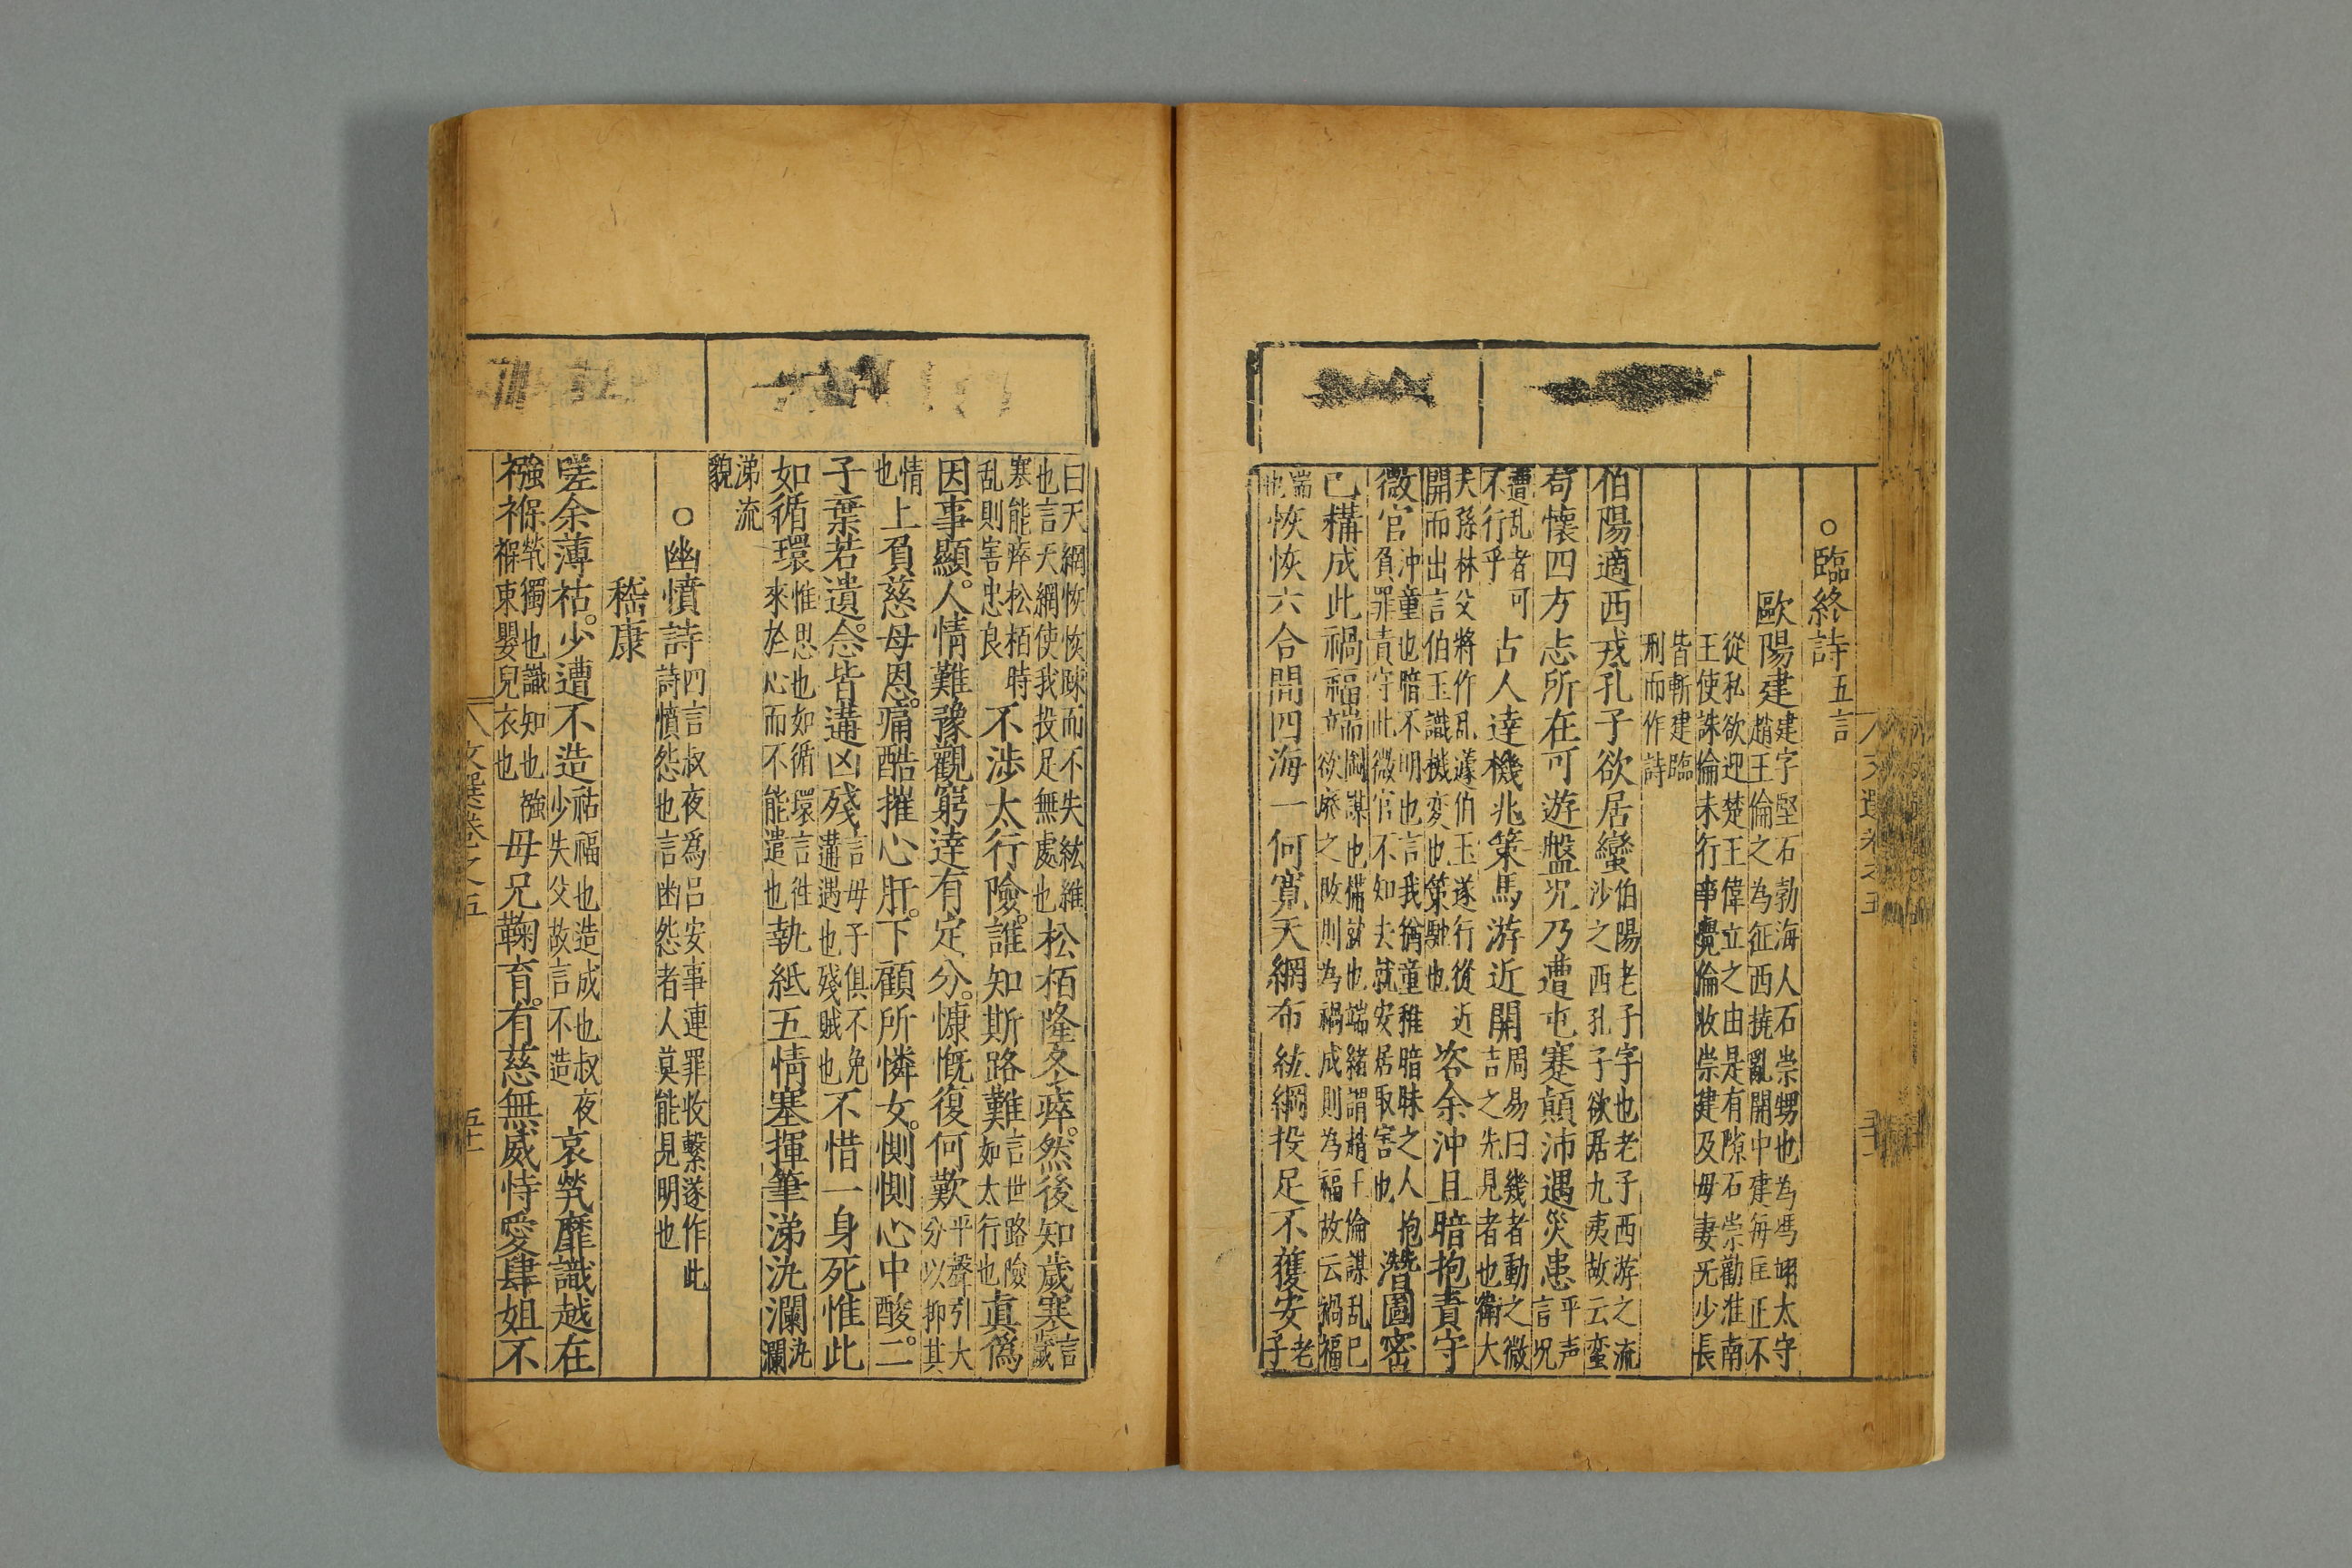 ○臨終詩五言
歐陽建建字堅石勃海人石崇甥也為馮翊太守趙王倫之為征西撓亂關中建每匡正不
從私欲迎楚王偉立之由是有隙石崇勸淮南王使誅倫未行事覺倫收崇建及母妻无少長
皆斬建臨刑而作詩
伯陽適西戎孔子欲居蠻伯陽老子字也老子西游之流沙之西孔子欲居九夷故云蛮
苟懷四方志所在可游盤况乃遭屯蹇顛沛遇災患平声言况
遭乱者可不行乎占人達機兆策馬游近關周易曰幾者動之微吉之先見者也衛大
夫孫林父將作乱蘧伯玉遂行從近開而出言伯玉識機変也策馳也咨余沖且暗抱責守
微官沖童也暗不明也言我猶童稚暗昧之人抱負罪責守此微官不知去就安居取害也潜圖密
已構成此禍福端圖謀也備就也端緒謂趙王倫謀乱已欲廢之敗則為禍成則為福故云禍福
端也恢恢六合間四海一何寬天網布紘綱投足不獲安老子
曰天網恢恢踈而不失紘維也言天網使我投足無處也松栢隆冬瘁。然後知歲寒言歲
寒能瘁松栢時乱則害忠良不涉太行險。誰知斯路難言世路險如太行也真僞
因事顯。人情難豫觀窮達有定分。慷慨復何歎平聲引大分以抑其
情也上負慈母恩。痛酷摧心肝。下顧所憐女。惻惻心中酸。二
子棄若遺。念皆遘凶殘言母子俱不免遘遇也殘賊也不惜一身死惟此
如循環惟思也如循環言徃來於心而不能遣也執紙五情塞揮筆涕汍瀾汍瀾
涕流貌
○幽憤詩四言叔夜爲呂安事連罪收繫遂作此詩憤怨也言幽怨者人莫能見明也
嵇康
嗟余薄祜。少遭不造祜福也造成也叔夜少失父故言不造哀煢靡識越在
襁褓煢獨也識知也襁褓束嬰兒衣也母兄鞠育。有慈無威恃愛肆姐不
文選卷之五